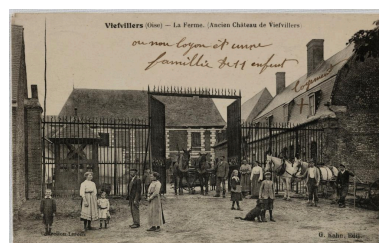 Viefvillers (Oise) — La Ferme. (Ancien Château de Viefvillers.
ou nou loyon et euvre
famillie de 11 enfent
logement
G. Kahn, Édit.